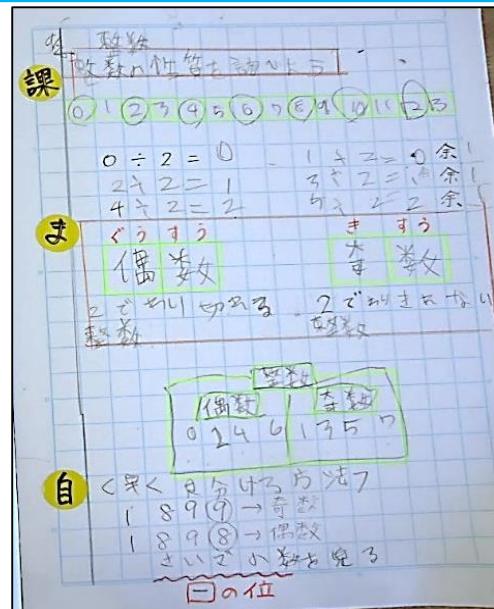 整数
課 整数の性質を調べよう
0 1 2 3 4 5 6 7 8 9 10 11 12 13
0÷2=0 1÷2=0余1
2÷2=1 3÷2=1余1
4÷2=2 5÷2=2余
ま ぐうすう きすう
偶数 奇数
2でわり切れる 2でわりきれない
整数 整数
整数
偶数 奇数
0 2 4 6 1 3 5 7
自 <早く見分ける方法>
1899→奇数
1898→偶数
さいごの数を見る
一の位